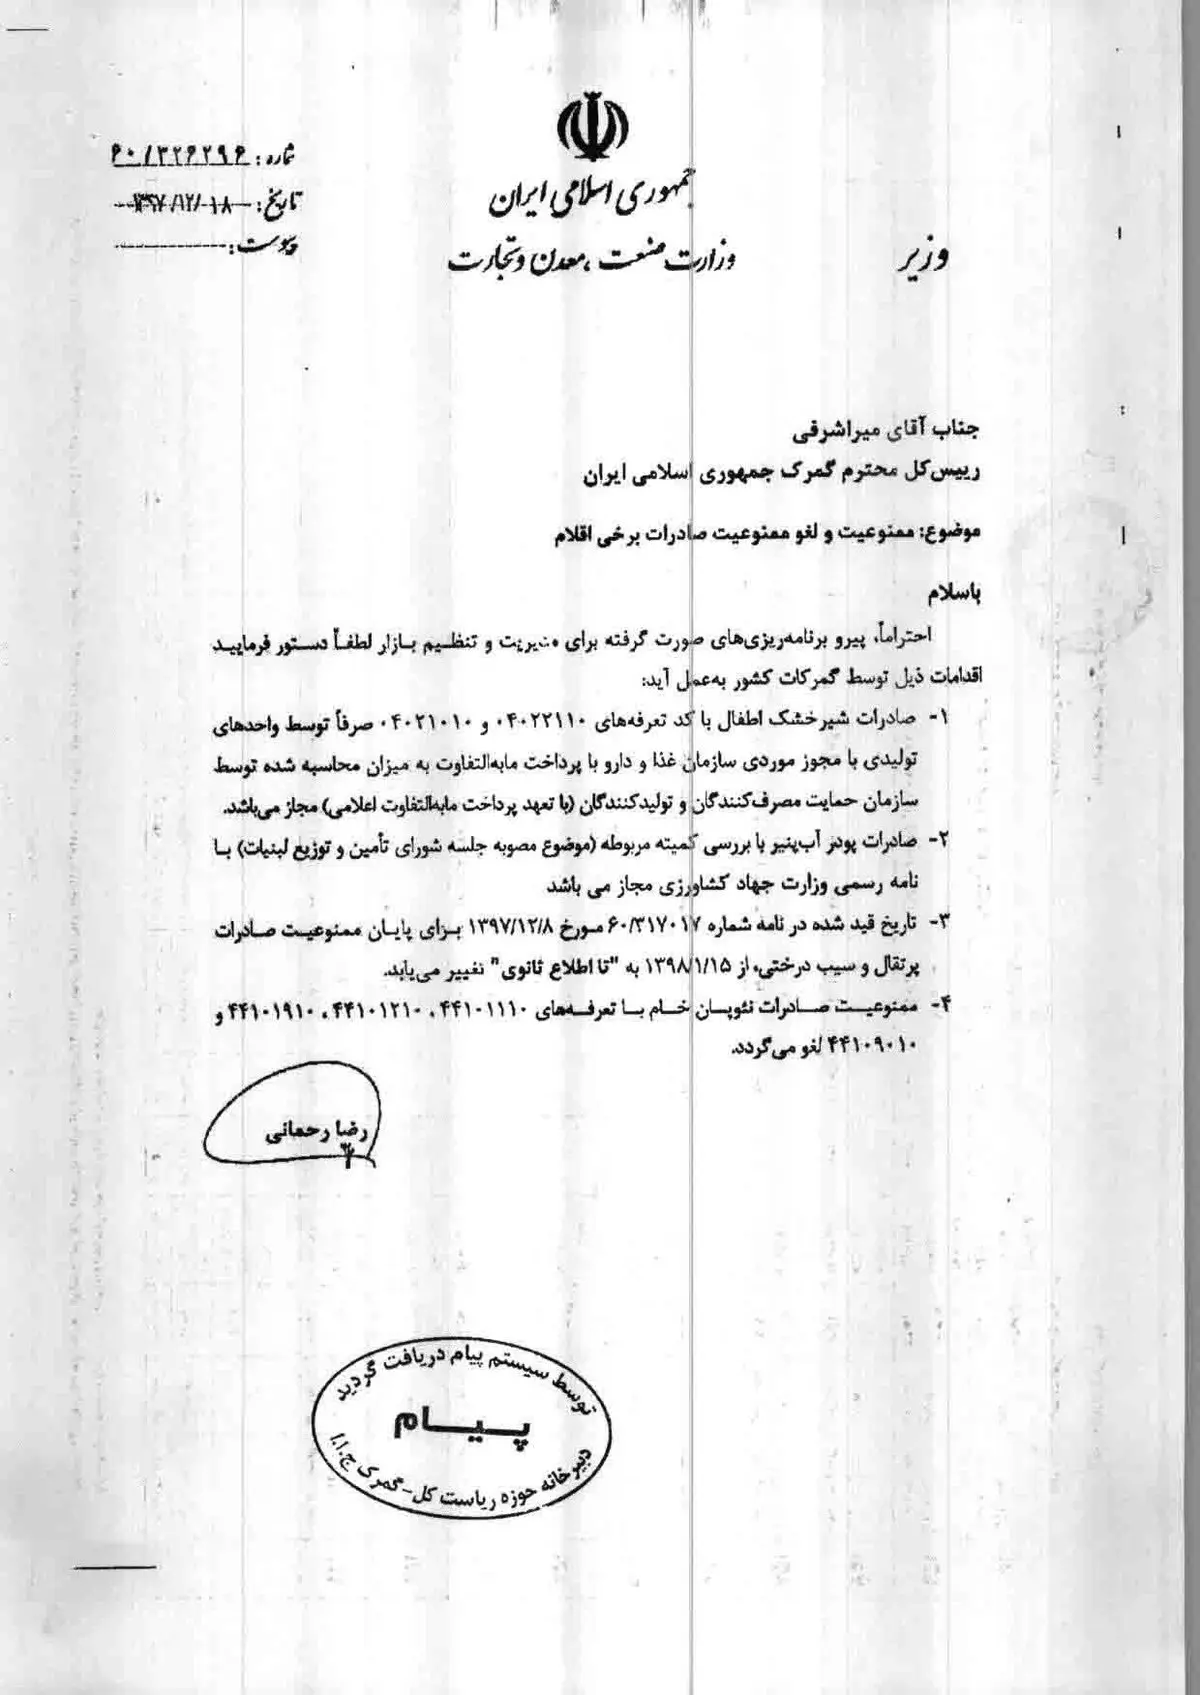 جمهوری اسلامی ایران
وزارت صنعت ، معدن و تجارت
وزیر
شماره : ۶۰/۳۲۶۲۹۶
تاریخ : ۱۳۹۷/۱۲/۰۱۸
پیوست :
جناب آقای میراشرفی
رییس‌کل محترم گمرک جمهوری اسلامی ایران
موضوع: ممنوعیت و لغو ممنوعیت صادرات برخی اقلام
باسلام
احتراماً، پیرو برنامه‌ریزی‌های صورت گرفته برای مدیریت و تنظیم بازار لطفاً دستور فرمایید
اقدامات ذیل توسط گمرکات کشور به‌عمل آید:
۱- صادرات شیرخشک اطفال با کد تعرفه‌های ۰۴۰۲۲۱۱۰ و ۰۴۰۲۱۰۱۰ صرفاً توسط واحدهای
تولیدی با مجوز موردی سازمان غذا و دارو با پرداخت مابه‌التفاوت به میزان محاسبه شده توسط
سازمان حمایت مصرف‌کنندگان و تولیدکنندگان (با تعهد پرداخت مابه‌التفاوت اعلامی) مجاز می‌باشد.
۲- صادرات پودر آب‌پنیر با بررسی کمیته مربوطه (موضوع مصوبه جلسه شورای تأمین و توزیع لبنیات) با
نامه رسمی وزارت جهاد کشاورزی مجاز می باشد
۳- تاریخ قید شده در نامه شماره ۶۰/۳۱۷۰۱۷ مورخ ۱۳۹۷/۱۲/۸ برای پایان ممنوعیت صادرات
پرتقال و سیب درختی، از ۱۳۹۸/۱/۱۵ به "تا اطلاع ثانوی" تغییر می‌یابد.
۴- ممنوعیت صادرات نئوپان خام با تعرفه‌های ۴۴۱۰۱۱۱۰ ، ۴۴۱۰۱۲۱۰ ، ۴۴۱۰۱۹۱۰ و
۴۴۱۰۹۰۱۰ لغو می‌گردد.
رضا رحمانی
توسط سیستم پیام دریافت گردید
پیام
دبیرخانه حوزه ریاست کل-گمرک ج.ا.ا